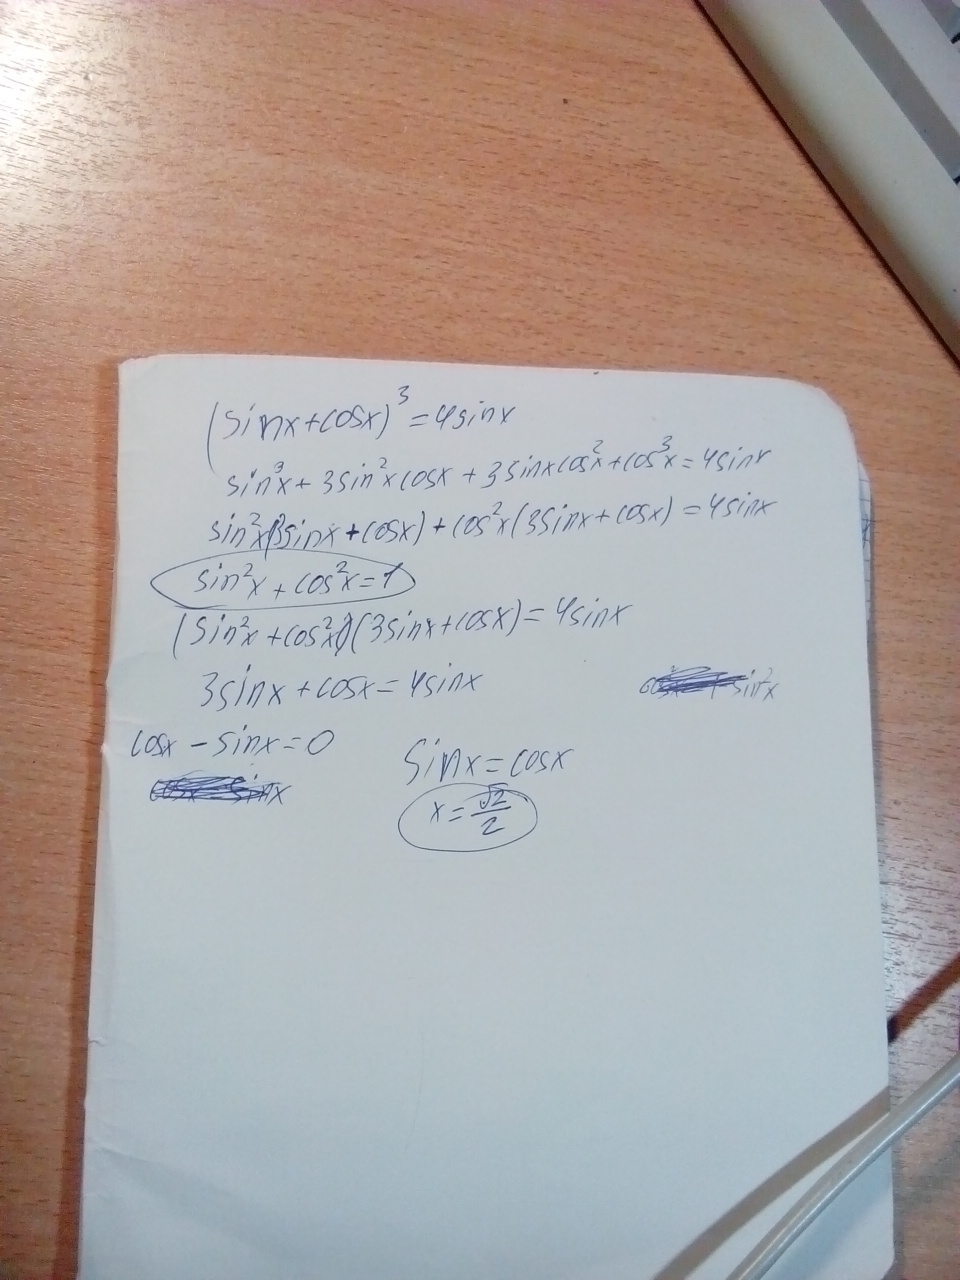 (sinx+cosx)³=4sinx
sin³x+3sin²xcosx+3sinxcos²x+cos³x=4sinx
sin²x(3sinx+cosx)+cos²x(3sinx+cosx)=4sinx
sin²x+cos²x=1
(sin²x+cos²x)(3sinx+cosx)=4sinx
3sinx+cosx=4sinx
sin²x
cosx-sinx=0
sinx=cosx
x=√2/2